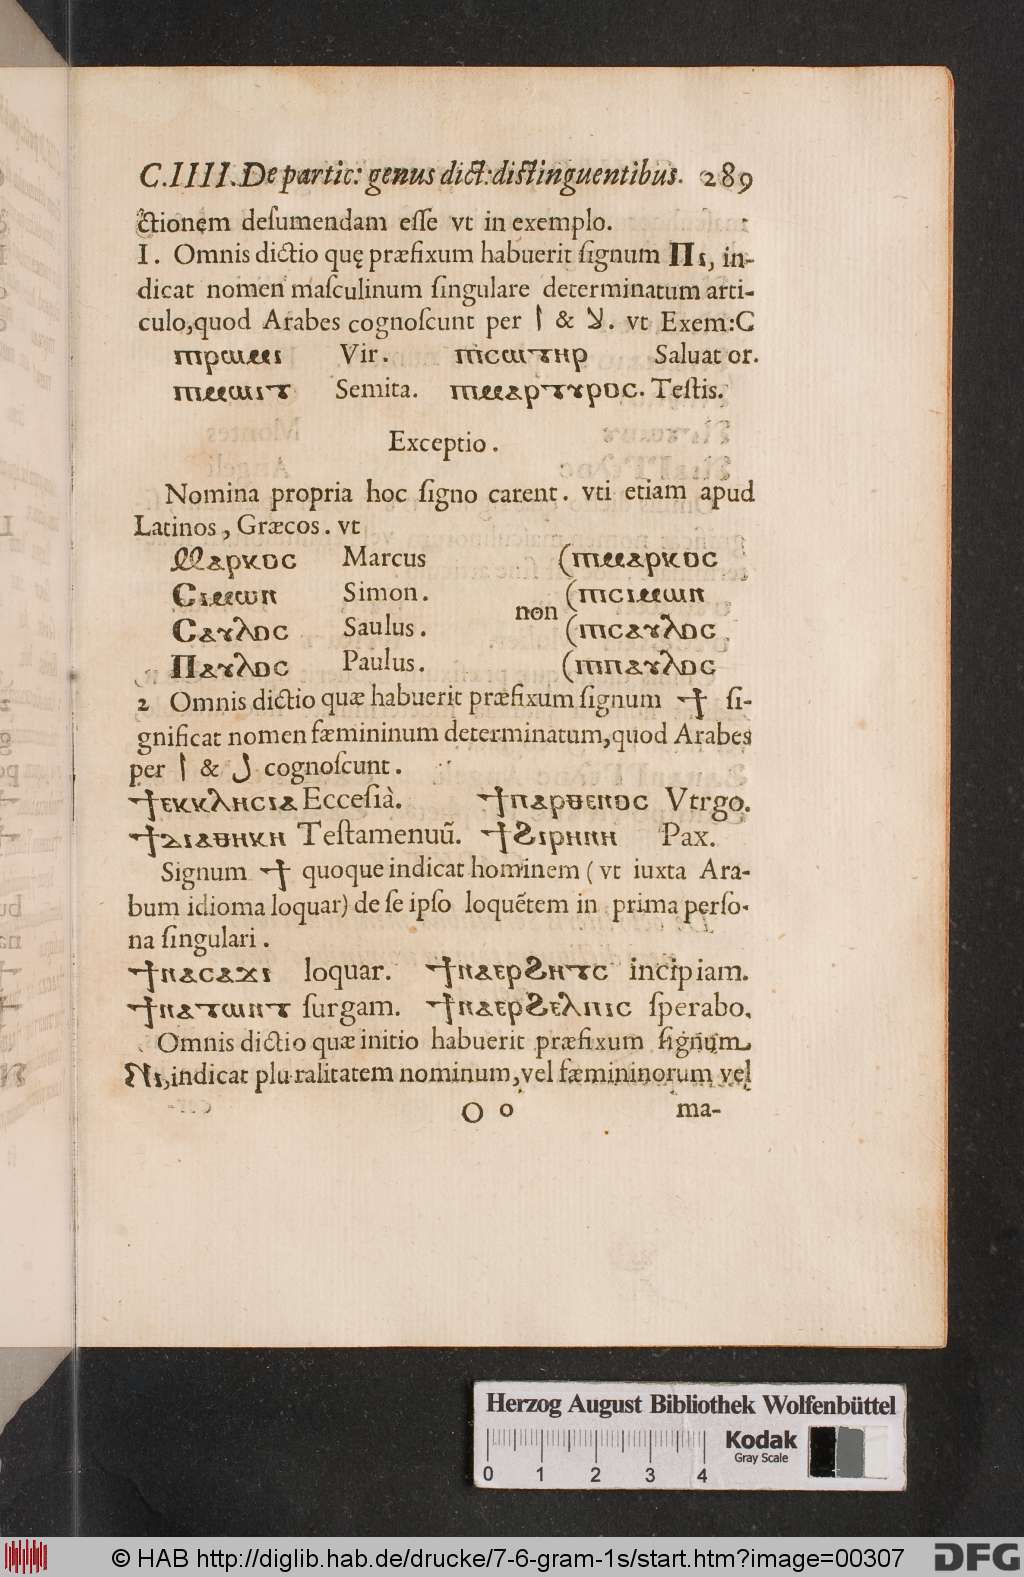 C.IIII.De partic: genus dict:distinguentibus. 289
ctionem deſumendam eſſe vt in exemplo.
I. Omnis dictio quę præfixum habuerit ſignum Ⲡⲓ, in-
dicat nomen maſculinum ſingulare determinatum arti-
culo,quod Arabes cognoſcunt per ا & لا. vt Exem:C
ⲡⲓⲣⲱⲙⲓ Vir. ⲡⲓⲥⲱⲧⲏⲣ Saluat or.
ⲡⲓⲙⲱⲓⲧ Semita. ⲡⲓⲙⲁⲣⲧⲩⲣⲟⲥ. Teſtis.
Exceptio.
Nomina propria hoc ſigno carent. vti etiam apud
Latinos, Græcos. vt
Ⲙⲁⲣⲕⲟⲥ Marcus (ⲡⲓⲙⲁⲣⲕⲟⲥ
Ⲥⲓⲙⲱⲛ Simon. non (ⲡⲓⲥⲓⲙⲱⲛ
Ⲥⲁⲩⲗⲟⲥ Saulus. (ⲡⲓⲥⲁⲩⲗⲟⲥ
Ⲡⲁⲩⲗⲟⲥ Paulus. (ⲡⲓⲡⲁⲩⲗⲟⲥ
2 Omnis dictio quæ habuerit præfixum ſignum ϯ ſi-
gnificat nomen fæmininum determinatum,quod Arabes
per ا & ل cognoſcunt.
ϯⲉⲕⲕⲗⲏⲥⲓⲁ Ecceſià. ϯⲡⲁⲣⲑⲉⲛⲟⲥ Vtrgo.
ϯⲇⲓⲁⲑⲏⲕⲏ Teſtamenuũ. ϯϩⲓⲣⲏⲛⲏ Pax.
Signum ϯ quoque indicat hominem (vt iuxta Ara-
bum idioma loquar) de ſe ipſo loquẽtem in prima perſo-
na ſingulari.
ϯⲛⲁⲥⲁϫⲓ loquar. ϯⲛⲁⲉⲣϩⲏⲧⲥ incipiam.
ϯⲛⲁⲧⲱⲛⲧ ſurgam. ϯⲛⲁⲉⲣϩⲉⲗⲡⲓⲥ ſperabo.
Omnis dictio quæ initio habuerit præfixum ſignum
Ⲛⲓ,indicat pluralitatem nominum,vel fæmininorum vel
O o ma-
Herzog August Bibliothek Wolfenbüttel
Kodak
Gray Scale
0 1 2 3 4
© HAB http://diglib.hab.de/drucke/7-6-gram-1s/start.htm?image=00307
DFG